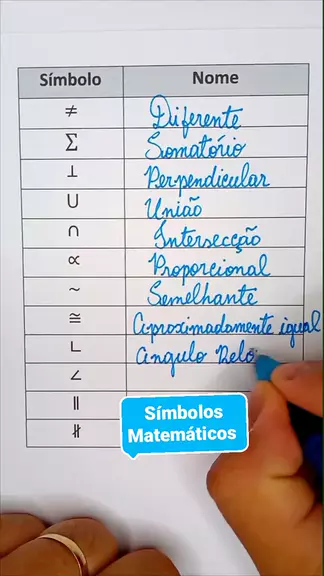 Símbolo Nome
≠ Diferente
∑ Somatório
⊥ Perpendicular
∪ União
∩ Intersecção
∝ Proporcional
~ Semelhante
≅ Aproximadamente igual
∟ Angulo
∠
∥
∦
Símbolos
Matemáticos